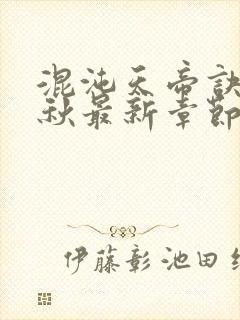 混沌天帝诀
秋最新章节
伊藤彰池田纟